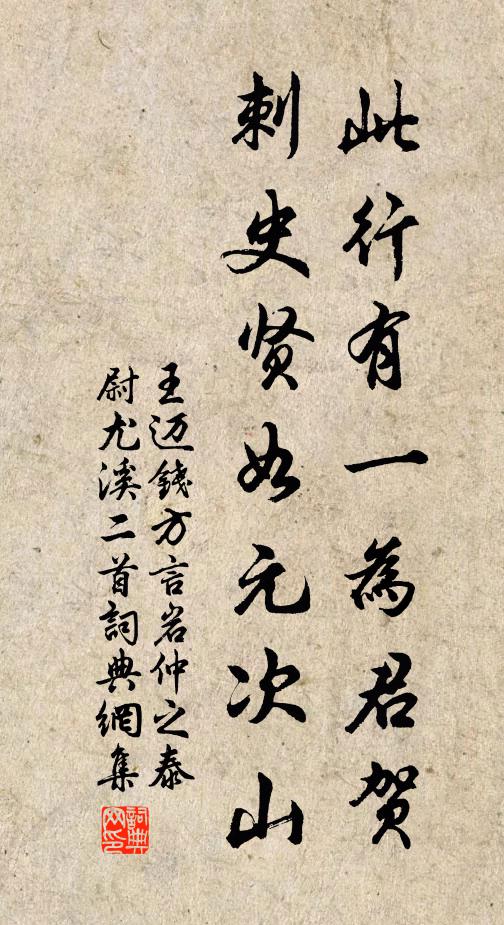 此行有一為君贺
刺史贤如元次山
王迈錢方言岩仲之泰
尉尤溪二首詞典網集
詞典
网印